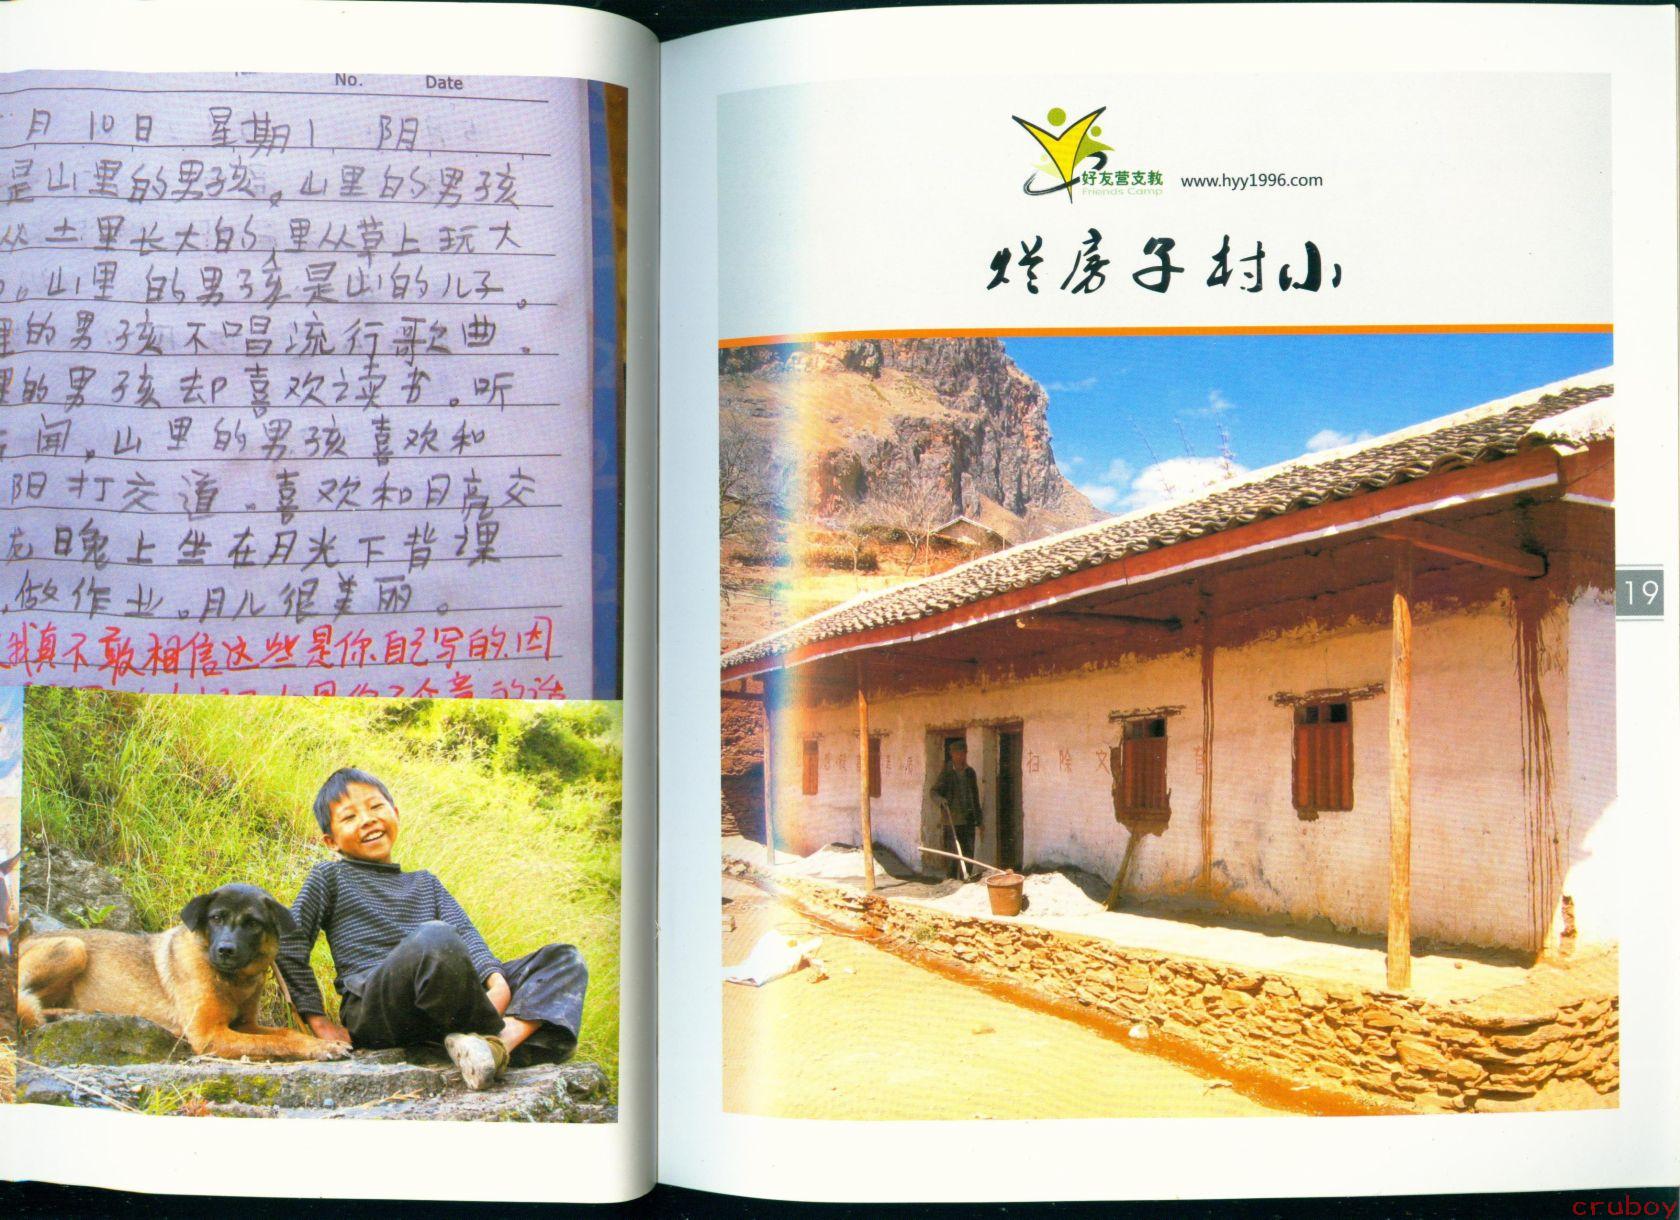 No. Date
月 10日 星期1 阴
是山里的男孩。山里的男孩
从土里长大的,里从草上玩大
。山里的男孩是山的儿子。
里的男孩不唱流行歌曲.
里的男孩去卩喜欢读书。听
闻。山里的男孩喜欢和
阳打交道.喜欢和月亮交
晚上坐在月光下背课
.做作业。月儿很美丽。
我真不敢相信这些是你自己写的,因
好友营支教
Friends Camp
www.hyy1996.com
烂房子村小
扫除文盲
19
cruboy